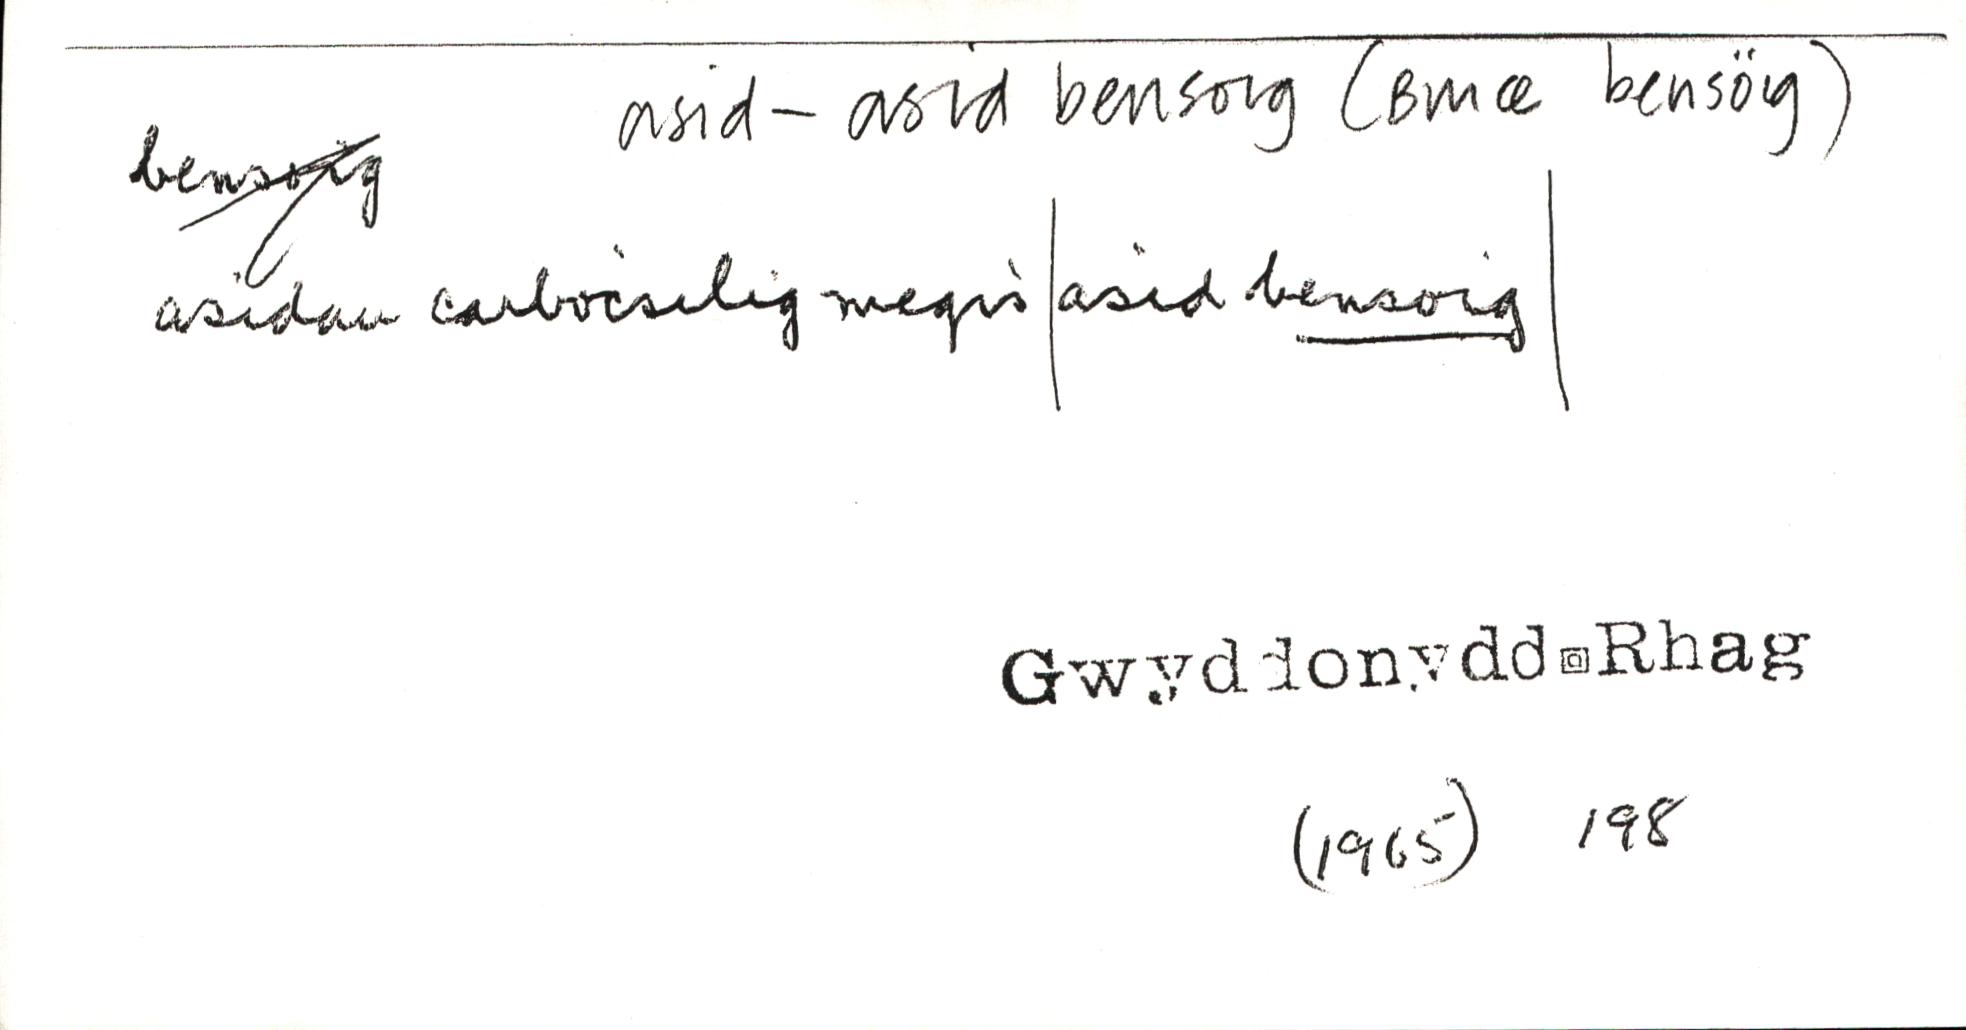 asid – asid bensoig (BMCE bensöig)
bensoig
asidau carbocsilig megis | asid bensoig |
Gwyddonydd Rhag
(1965) 198